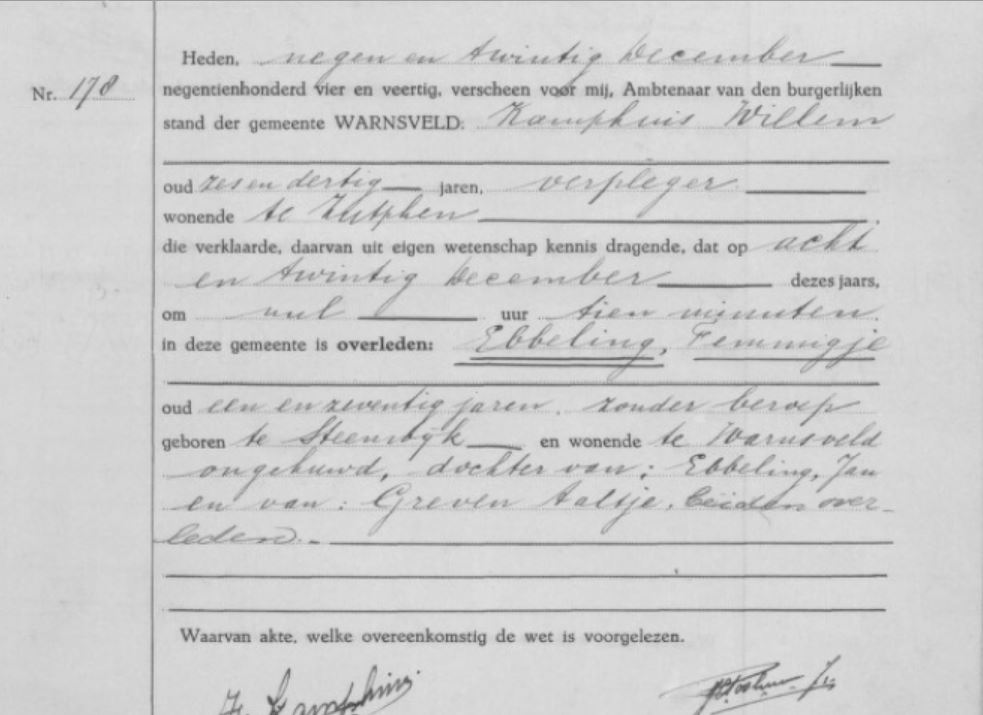 Heden, negen en twintig December
Nr. 178 negentienhonderd vier en veertig, verscheen voor mij, Ambtenaar van den burgerlijken
stand der gemeente WARNSVELD: Kamphuis Willem
oud zes en dertig jaren, verpleger
wonende te Zutphen
die verklaarde, daarvan uit eigen wetenschap kennis dragende, dat op acht
en twintig December dezes jaars,
om nul uur tien minuten
in deze gemeente is overleden: Ebbeling, Femmigje
oud een en zeventig jaren, zonder beroep
geboren te Steenwijk en wonende te Warnsveld
ongehuwd, dochter van: Ebbeling, Jan
en van: Greven Aaltje, beiden over-
leden.-
Waarvan akte, welke overeenkomstig de wet is voorgelezen.
Kamphuis